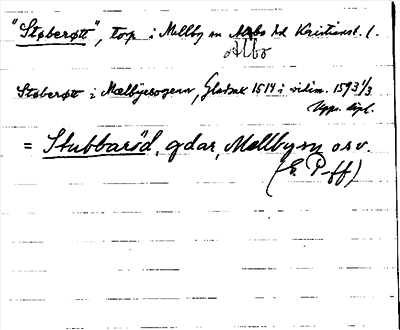 "Støberøtt", torp i Mellby sn Albo hd Kristianst. l.
Støberøtt i Mælbyesogenn, Gladsax 1514 i vidim. 1593 1/3
Upps. dipl.
= Stubbaröd, gdar, Mellby sn o.s.v.
(E P-ff)